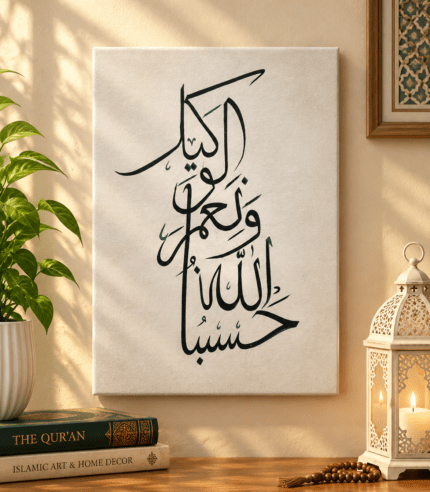 حسبنا
الله
ونعم
الوكيل
THE QUR'AN
ISLAMIC ART & HOME DECOR